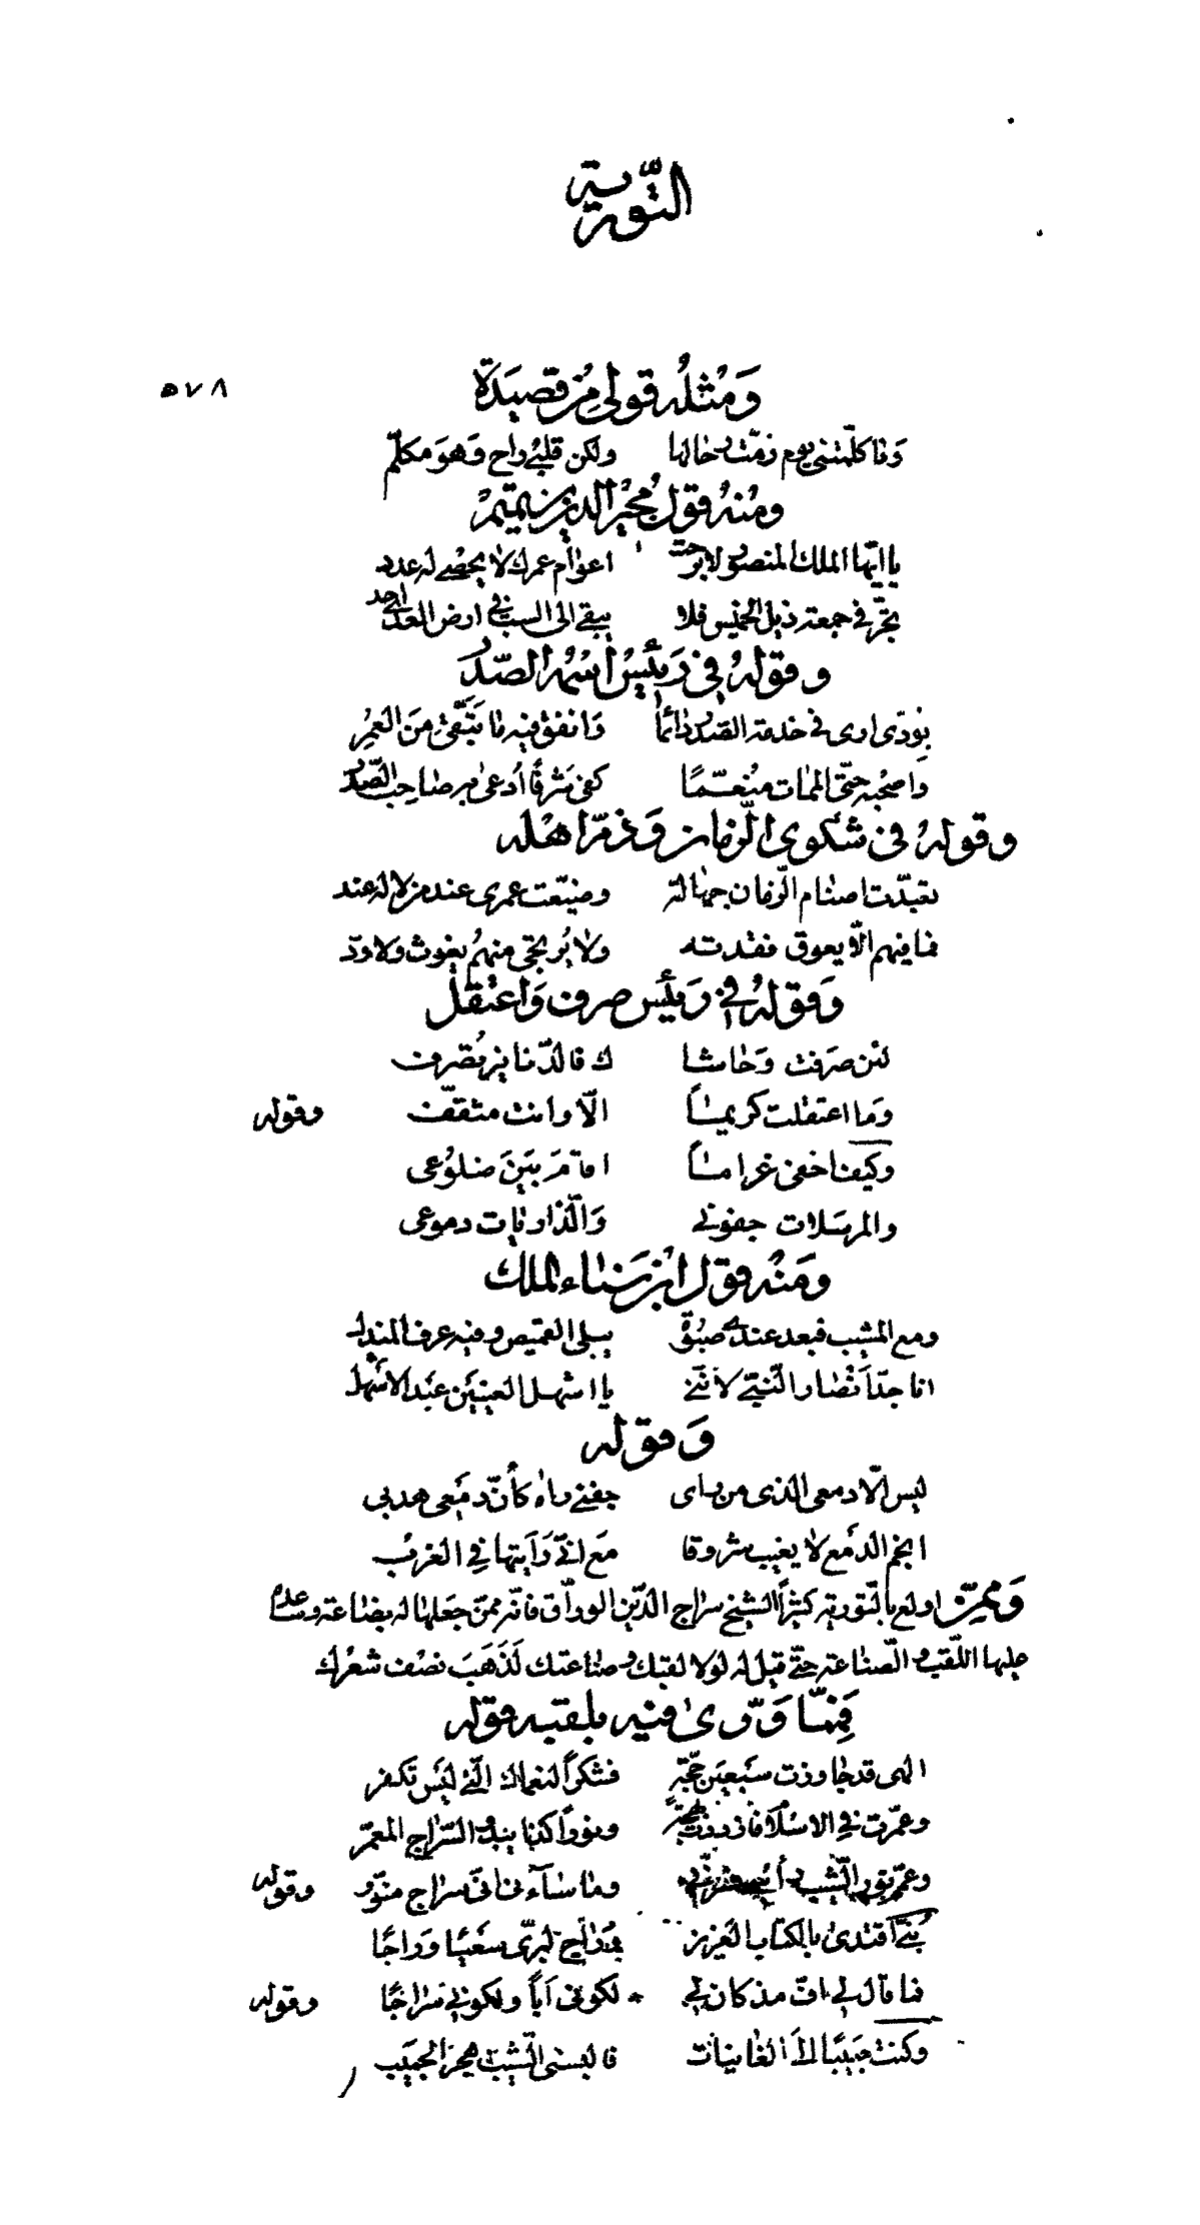 التّورية
٥٧٨
وَمثله قولي من قصيدة
وَما كلّمتني يوم زمّت رحالها ولكن قلبي راح وَهوَ مكلّم
ومنه قول مجير الدين بن تميم
يا ايّها الملك المنصور لا برحت اعوام عمرك لا يحصى له عدد
تجرّ في جمعة ذيل الخميس فلا يبقى الى السبت في ارض العدا احد
وقوله في رَئيس اسمه الصّدر
بودّى ارى في خدمة الصّدر دائماً وَانفق فيه ما تَبَقّى مِنَ العمر
واصحبه حتّى الممات منعّمًا كفى شرفًا أدعى بصاحب الصّدر
وقوله فى شكوى الزّمان وَذمّ اهله
تعبدّت اصنام الزّمان جهالة وضيّعت عمرى عند من لا له عند
فما فيهم الّا يعوق فقدته ولا يُرتجى منهم يغوث ولا ودّ
وَقوله في رَئيس صرف وَاعتقل
لئن صرفت وَحاشا ك فالدّنانير تصرف
وَما اعتقلت كريمًا الّا وانت مثقّف وقوله
وكيف اخفى غرامًا اقام بَينَ ضلوعى
والمرسَلات جفوني وَالذّاريات دموعى
وَمنه قول ابن سَناء الملك
ومع المشيب فبعد عندى صبوة يبلى القميص وفيه عرف المندل
انا جدّ انصار النّبيّ لأنّني يا اشهل العينين عبد الاشهل
وَقوله
ليس الّا دمعى الذى من راى جفني رآه كأنّ دمعى هدبى
انجم الدمع لا يغيب شروقا مع انّي رَأيتها في الغرب
وَممّن اولع بالتّورية كثيرًا الشيخ سراج الدّين الورّاق فانّه ممّن جعلها له بضاعة وساعده
عليها اللّقب والصّناعة حتّى قيل له لولا لقبك وصناعتك لَذَهَبَ نصف شعرك
فَمِمّا وَرّى فيه بلقبه قوله
الهى قد جاوزت سَبعين حجّة فشكرًا لنعماك الّتي ليس تكفر
وعمّرت في الاسلام فازددت بهجة ونورًا كذا يبدو السّراج المعمّر
وعمّ نور الشّيب رأسى فسرّنى وما ساءَنى انّ سراج منوّر وقوله
بُنيّ اقتدى بالكتاب العَزيز فراح لبرّى سَعيًا وَراجًا
فما قال لى افّ مذ كان لي لكونى اَبًا ولكوني سراجًا وقوله
وكنت حَبيبًا الى الغانيات فالبسنى الشّيب هجر الحبيب